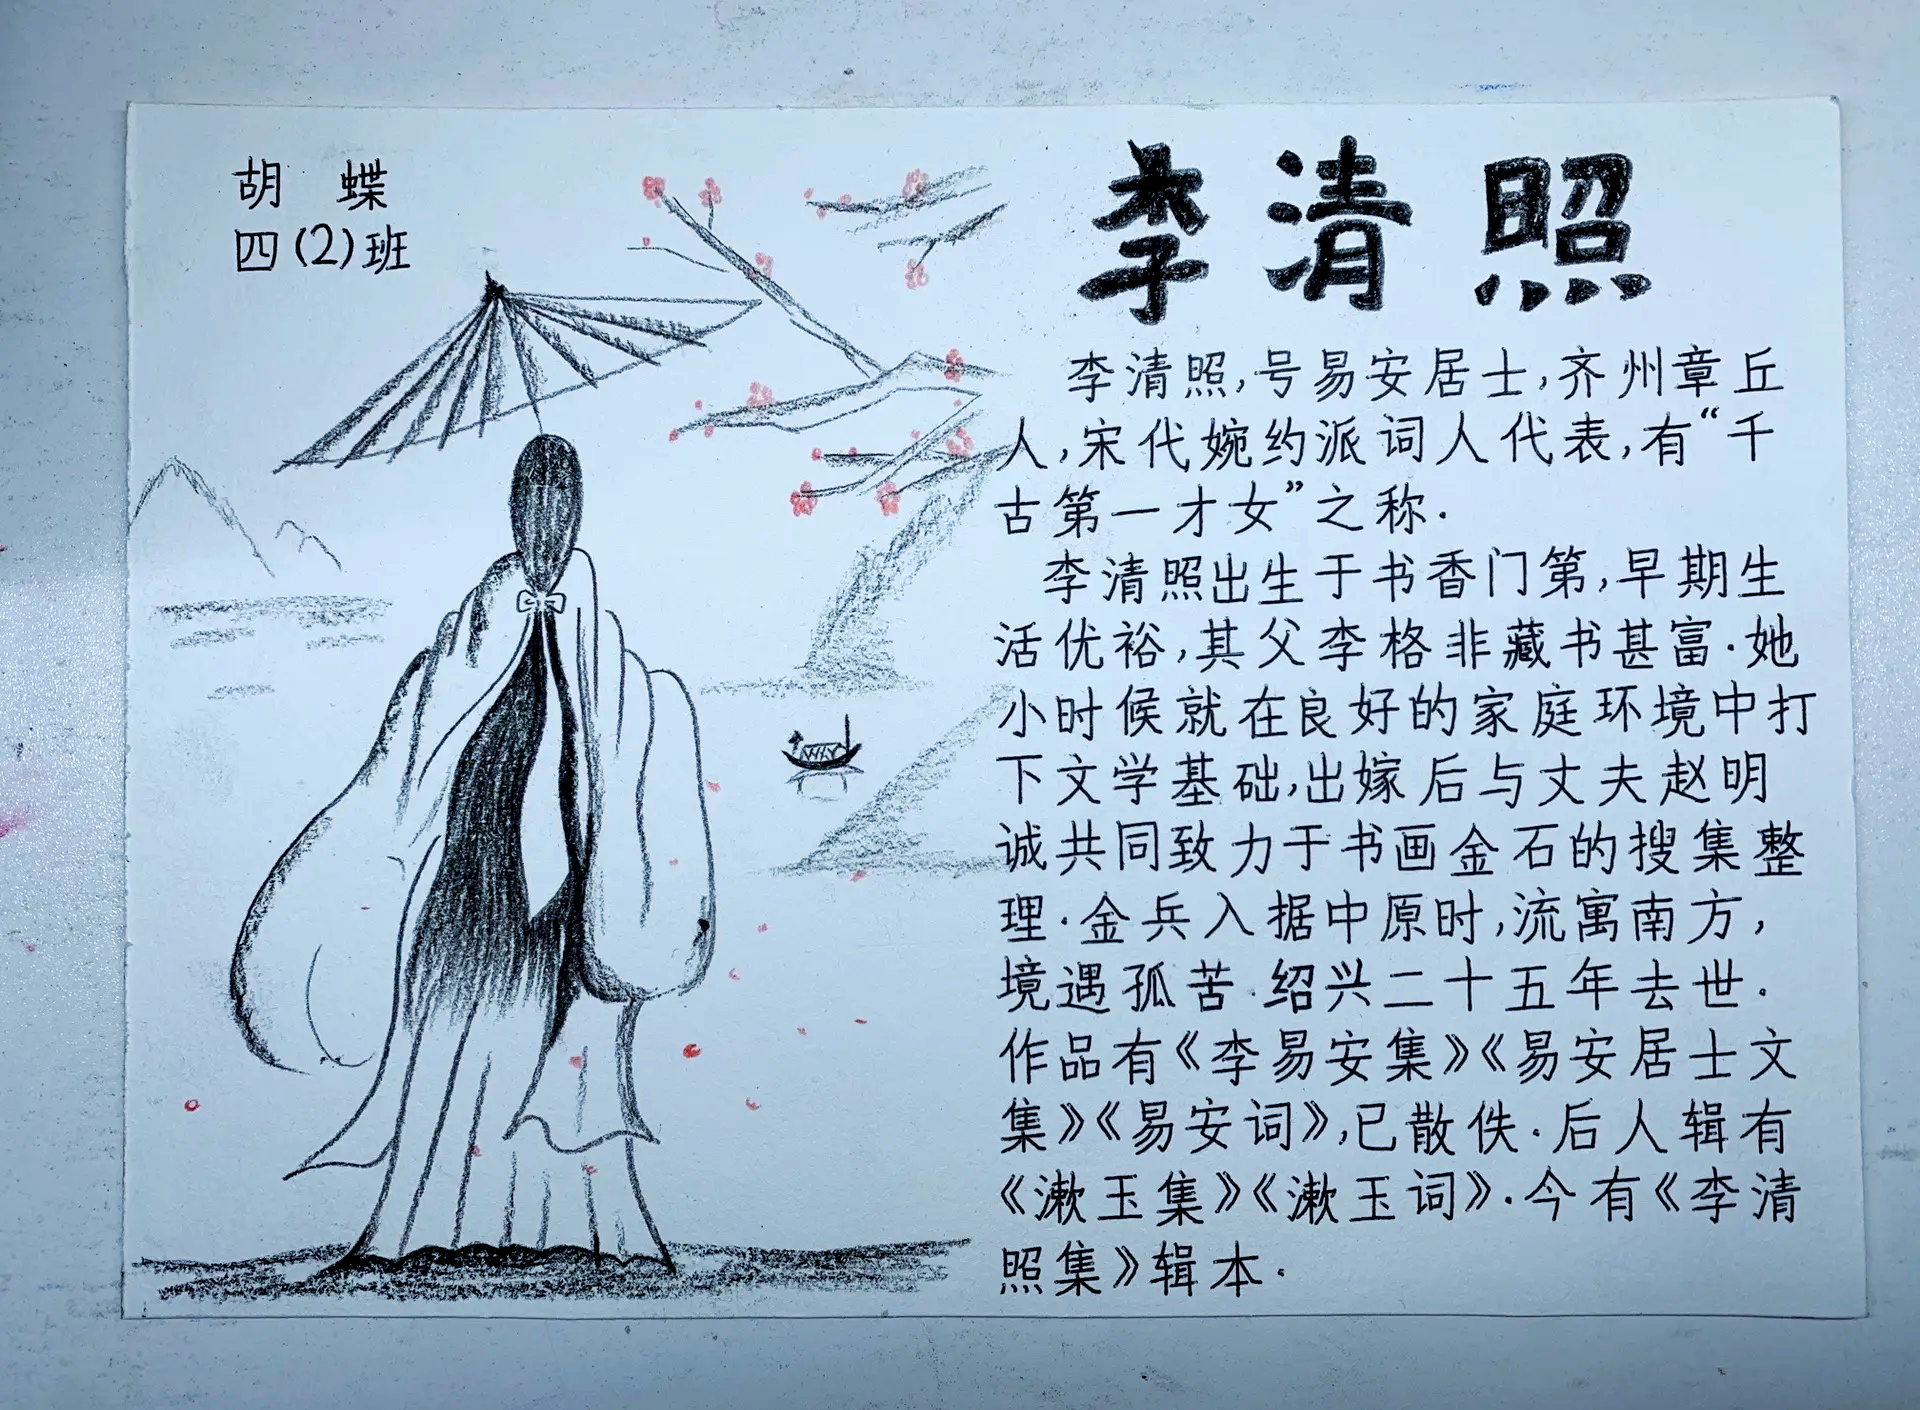 胡 蝶
四(2)班
李清照
李清照,号易安居士,齐州章丘
人,宋代婉约派词人代表,有“千
古第一才女”之称.
李清照出生于书香门第,早期生
活优裕,其父李格非藏书甚富.她
小时候就在良好的家庭环境中打
下文学基础,出嫁后与丈夫赵明
诚共同致力于书画金石的搜集整
理.金兵入据中原时,流寓南方,
境遇孤苦.绍兴二十五年去世.
作品有《李易安集》《易安居士文
集》《易安词》,已散佚.后人辑有
《漱玉集》《漱玉词》.今有《李清
照集》辑本.